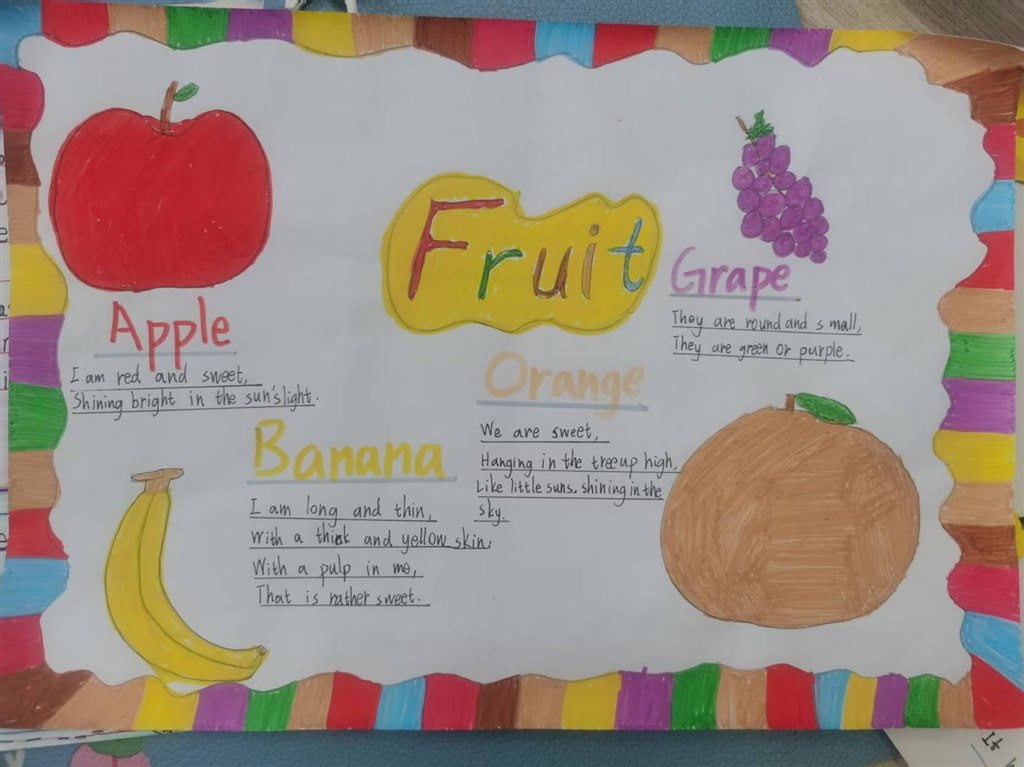 Fruit
Apple
I am red and sweet,
Shining bright in the sun's light.
Banana
I am long and thin,
With a thick and yellow skin,
With a pulp in me,
That is rather sweet.
Orange
We are sweet,
Hanging in the tree up high,
Like little suns, shining in the
sky.
Grape
They are round and small,
They are green or purple.
It